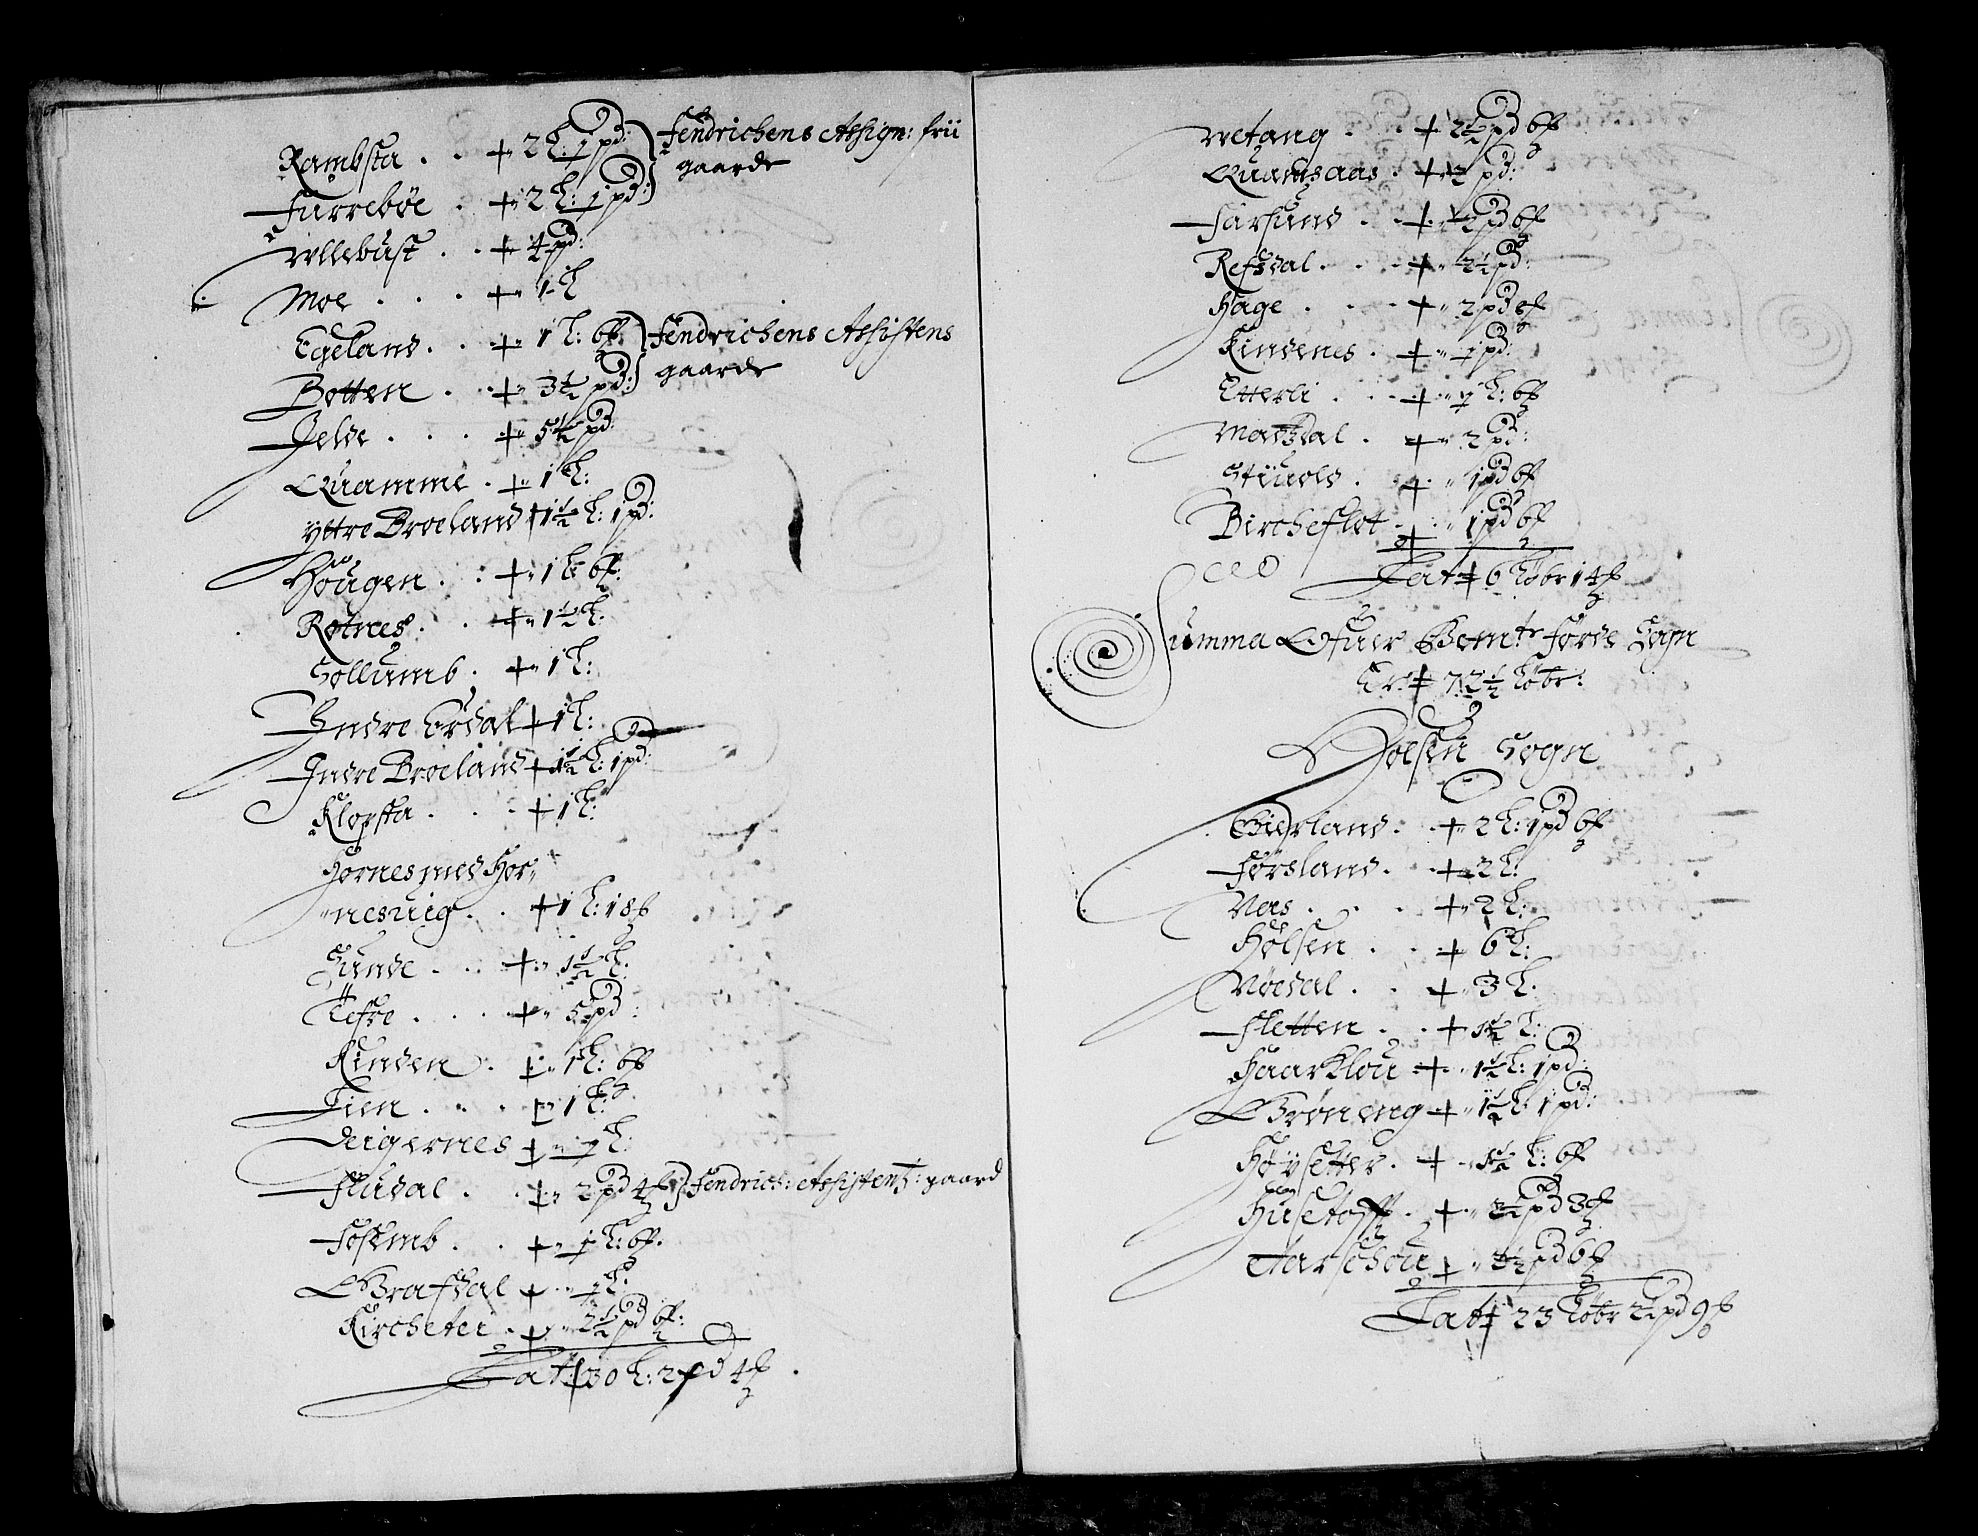 Rambsta . . + 2 L: 1 pd: } Fendrichens Assign: frii
gaarde
Farrebøe . + 2 L: 1 pd: }
Ullebust . . + 4 pd:
Moe . . . + 1 L
Egeland . . + 1 L: 6 ß } Fendrichens Assistens
gaarde
Botten . . + 3½ pd: }
Jelde . . . + 5½ pd:
Quamme . + 1 L:
Yttre Broeland + 1½ L: 1 pd:
Hougen . : + 1 L 6 ß:
Rotnes . . + 1½ L:
Sollumb . + 1 L:
Indre Erdal + 1 L:
Indre Broeland + 1½ L: 1 pd:
Klopsta . . . + 1 L:
Hornes med Hor-
nesuig . . + 1 L: 18 ß
Sunde . . + 1½ L:
Tefre . . . + 5 pd:
Kinden . + 1 L: 6 ß
Tien . . . + 1 L:
Deigernes + 1 L:
Fludal . . + 2 pd 4 ß } Fendrich: Assistents: gaard
Foskmb . . + 1 L: 6 ß.
Grafdal + 1 L:
Kircheter . + 2½ pd 6 ß:
Lat: 30 L: 2 pd 4 ß .
Wetang . . + 2½ pd 6 ß
Quamsaas . + 2 pd:
Farsund . . + 2 pd 6 ß
Refsdal . . . + 2½ pd:
Hage . . . + 2 pd 8 ß
Kindenes . + 1 pd:
Etterli . . . + 1 L: 6 ß
Marsdal . + 2 pd:
Stuuold . + 1 pd 6 ß
Bircheflot . + 1 pd 6 ß
Lat 6 Løbr 14 ß
Summa Ofuer Bemte Førde Sogn
Er 72½ Løbr:
Holsen Sogn
Gierland . . + 2 L: 1 pd 6 ß
Førsland . + 2 L:
Nes . . . + 2 L:
Holsen . . + 6 L:
Nøedal . . + 3 L.
Fletten . . + 1½ L:
Haarklou + 1½ L: 1 pd:
Grøneng + 1½ L 1 pd:
Høysetter . + 1½ L: 6 ß
Husetofft . + 2½ pd 3 ß
Aarschou + 2½ pd 6 ß
Lat 23 Løbr 2½ pd 9 ß